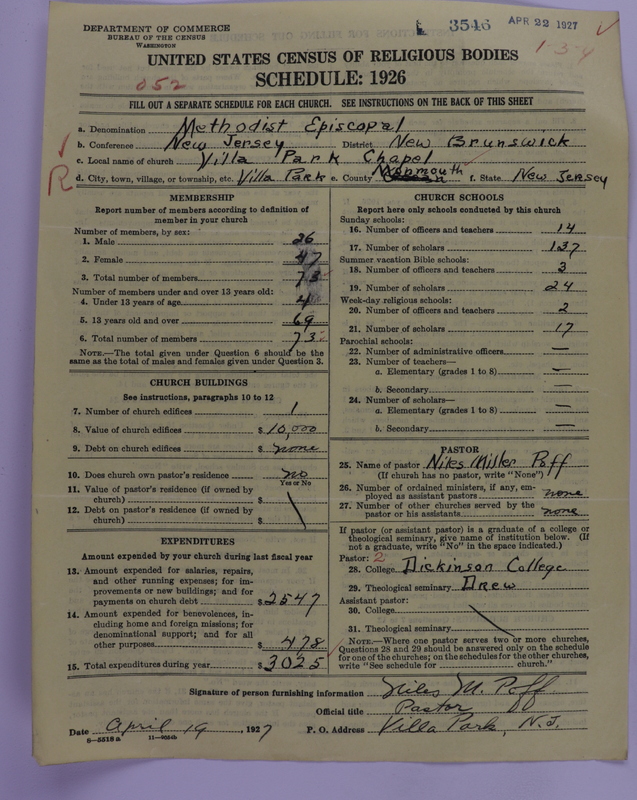 DEPARTMENT OF COMMERCE
BUREAU OF THE CENSUS
WASHINGTON
3546 APR 22 1927
1-3-4
UNITED STATES CENSUS OF RELIGIOUS BODIES
SCHEDULE: 1926
052
FILL OUT A SEPARATE SCHEDULE FOR EACH CHURCH. SEE INSTRUCTIONS ON THE BACK OF THIS SHEET
a. Denomination Methodist Episcopal
b. Conference New Jersey District New Brunswick
c. Local name of church Villa Park Chapel
R
d. City, town, village, or township, etc. Villa Park e. County Monmouth f. State New Jersey
MEMBERSHIP
Report number of members according to definition of
member in your church
Number of members, by sex:
1. Male 26
2. Female 47
3. Total number of members 73
Number of members under and over 13 years old:
4. Under 13 years of age 4
5. 13 years old and over 69
6. Total number of members 73
NOTE.—The total given under Question 6 should be the
same as the total of males and females given under Question 3.
CHURCH BUILDINGS
See instructions, paragraphs 10 to 12
7. Number of church edifices 1
8. Value of church edifices $ 10,000
9. Debt on church edifices $ none
10. Does church own pastor's residence no
Yes or No
11. Value of pastor's residence (if owned by
church) $
12. Debt on pastor's residence (if owned by
church) $
EXPENDITURES
Amount expended by your church during last fiscal year
13. Amount expended for salaries, repairs,
and other running expenses; for im-
provements or new buildings; and for
payments on church debt $ 2547
14. Amount expended for benevolences, in-
cluding home and foreign missions; for
denominational support; and for all
other purposes $ 478
15. Total expenditures during year $ 3025
CHURCH SCHOOLS
Report here only schools conducted by this church
Sunday schools:
16. Number of officers and teachers 14
17. Number of scholars 137
Summer vacation Bible schools:
18. Number of officers and teachers 3
19. Number of scholars 24
Week-day religious schools:
20. Number of officers and teachers 2
21. Number of scholars 17
Parochial schools:
22. Number of administrative officers —
23. Number of teachers—
a. Elementary (grades 1 to 8) —
b. Secondary —
24. Number of scholars—
a. Elementary (grades 1 to 8) —
b. Secondary —
PASTOR
25. Name of pastor Niles Miller Poff
(If church has no pastor, write "None")
26. Number of ordained ministers, if any, em-
ployed as assistant pastors none
27. Number of other churches served by the
pastor or his assistants none
If pastor (or assistant pastor) is a graduate of a college or
theological seminary, give name of institution below. (If
not a graduate, write "No" in the space indicated.)
Pastor: 2
28. College Dickinson College
29. Theological seminary Drew
Assistant pastor:
30. College
31. Theological seminary
NOTE.—Where one pastor serves two or more churches,
Questions 28 and 29 should be answered only on the schedule
for one of the churches; on the schedules for the other churches,
write "See schedule for church."
Signature of person furnishing information Niles M. Poff
Official title Pastor
Date April 19, 1927 P. O. Address Villa Park, N.J.
8—5518a 11—9054b